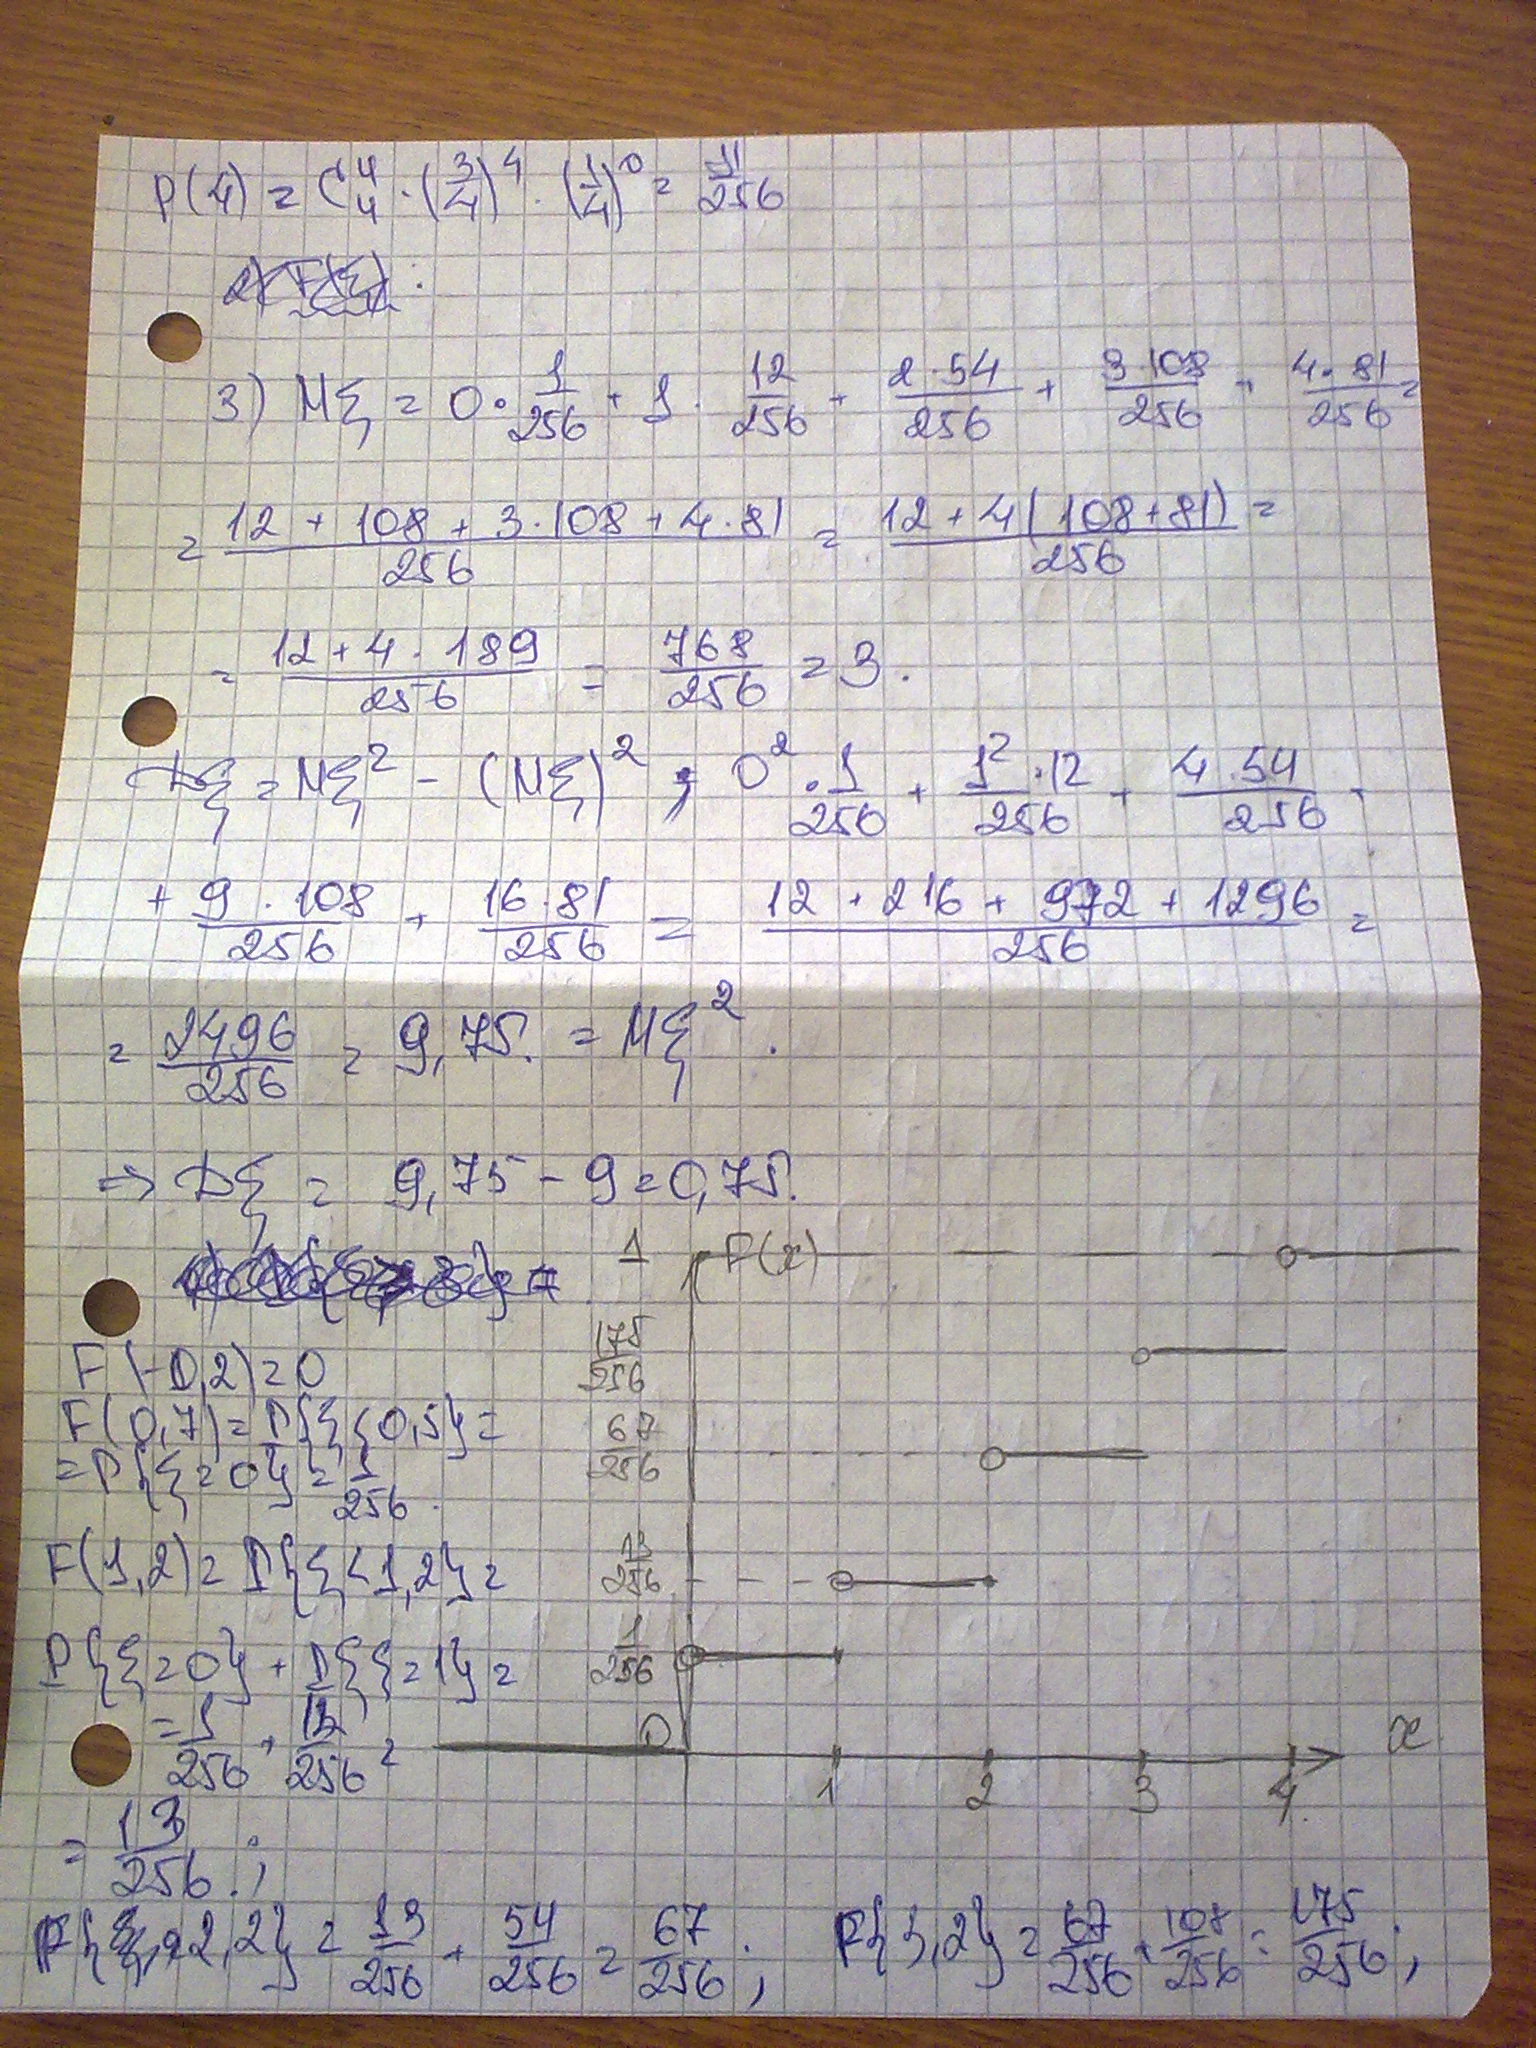 P(4) = C₄⁴ · (3/4)⁴ · (1/4)⁰ = 81/256
3) Mξ = 0 · 1/256 + 1 · 12/256 + 2·54/256 + 3·108/256 + 4·81/256 =
= (12 + 108 + 3·108 + 4·81)/256 = (12 + 4(108+81))/256 =
= (12 + 4·189)/256 = 768/256 = 3.
Dξ = Mξ² - (Mξ)² ; 0² · 1/256 + 1²·12/256 + 4·54/256 +
+ 9·108/256 + 16·81/256 = (12 + 216 + 972 + 1296)/256 =
= 2496/256 = 9,75. = Mξ².
⇒ Dξ = 9,75 - 9 = 0,75.
F(-0,2) = 0
F(0,7) = P{ξ<0,5} =
= P{ξ=0} = 1/256.
F(1,2) = P{ξ<1,2} =
P{ξ=0} + P{ξ=1} =
= 1/256 + 12/256 =
= 13/256.;
1 F(x)
175/256
67/256
13/256
1/256
0 x
1 2 3 4
2,2} = 13/256 + 54/256 = 67/256; F{3,2} = 67/256 + 108/256 = 175/256;